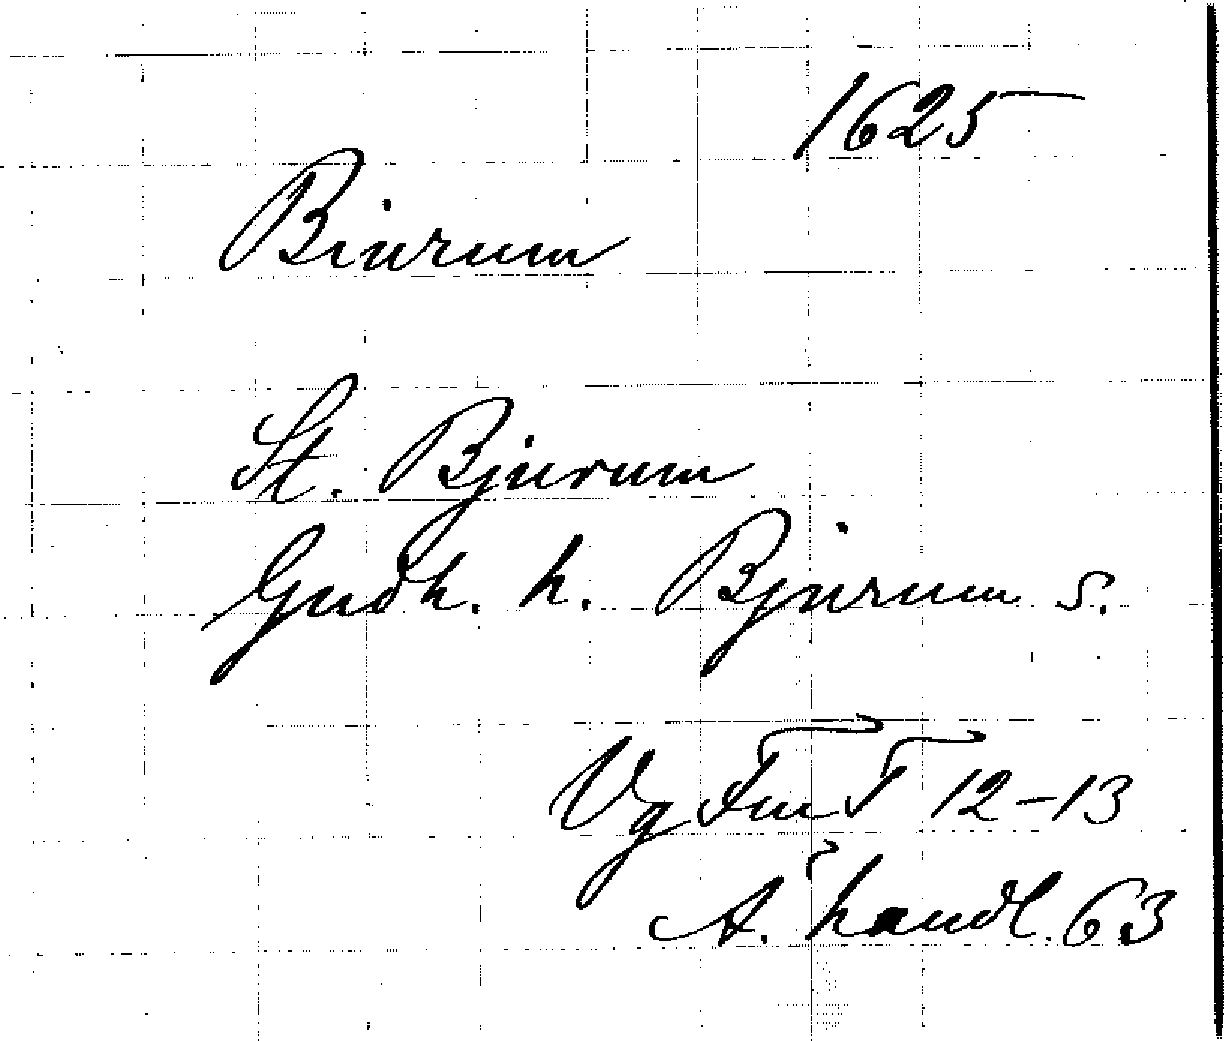 1625
Biurum
St. Bjurum
Gudh. h. Bjurum s.
Vg FmT 12-13
A. handl. 63